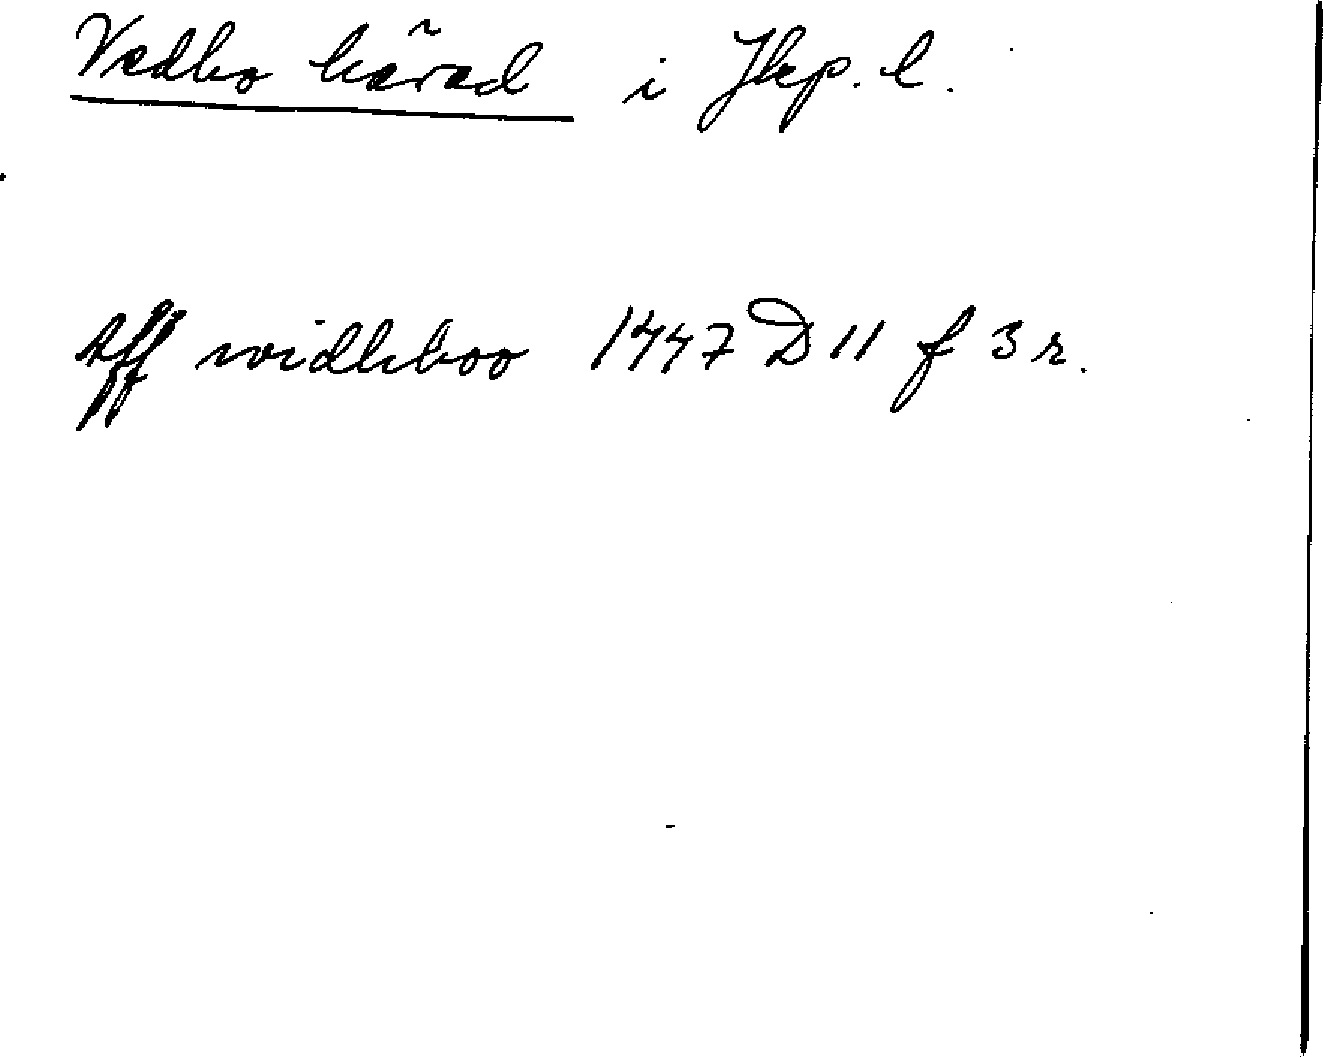 Vedbo härad i Jkp. l.
Aff widhboo 1447 D 11 f 3 r.